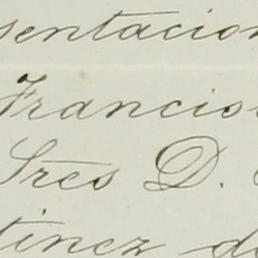 sentacion
Francis
Sres D.
tinez de